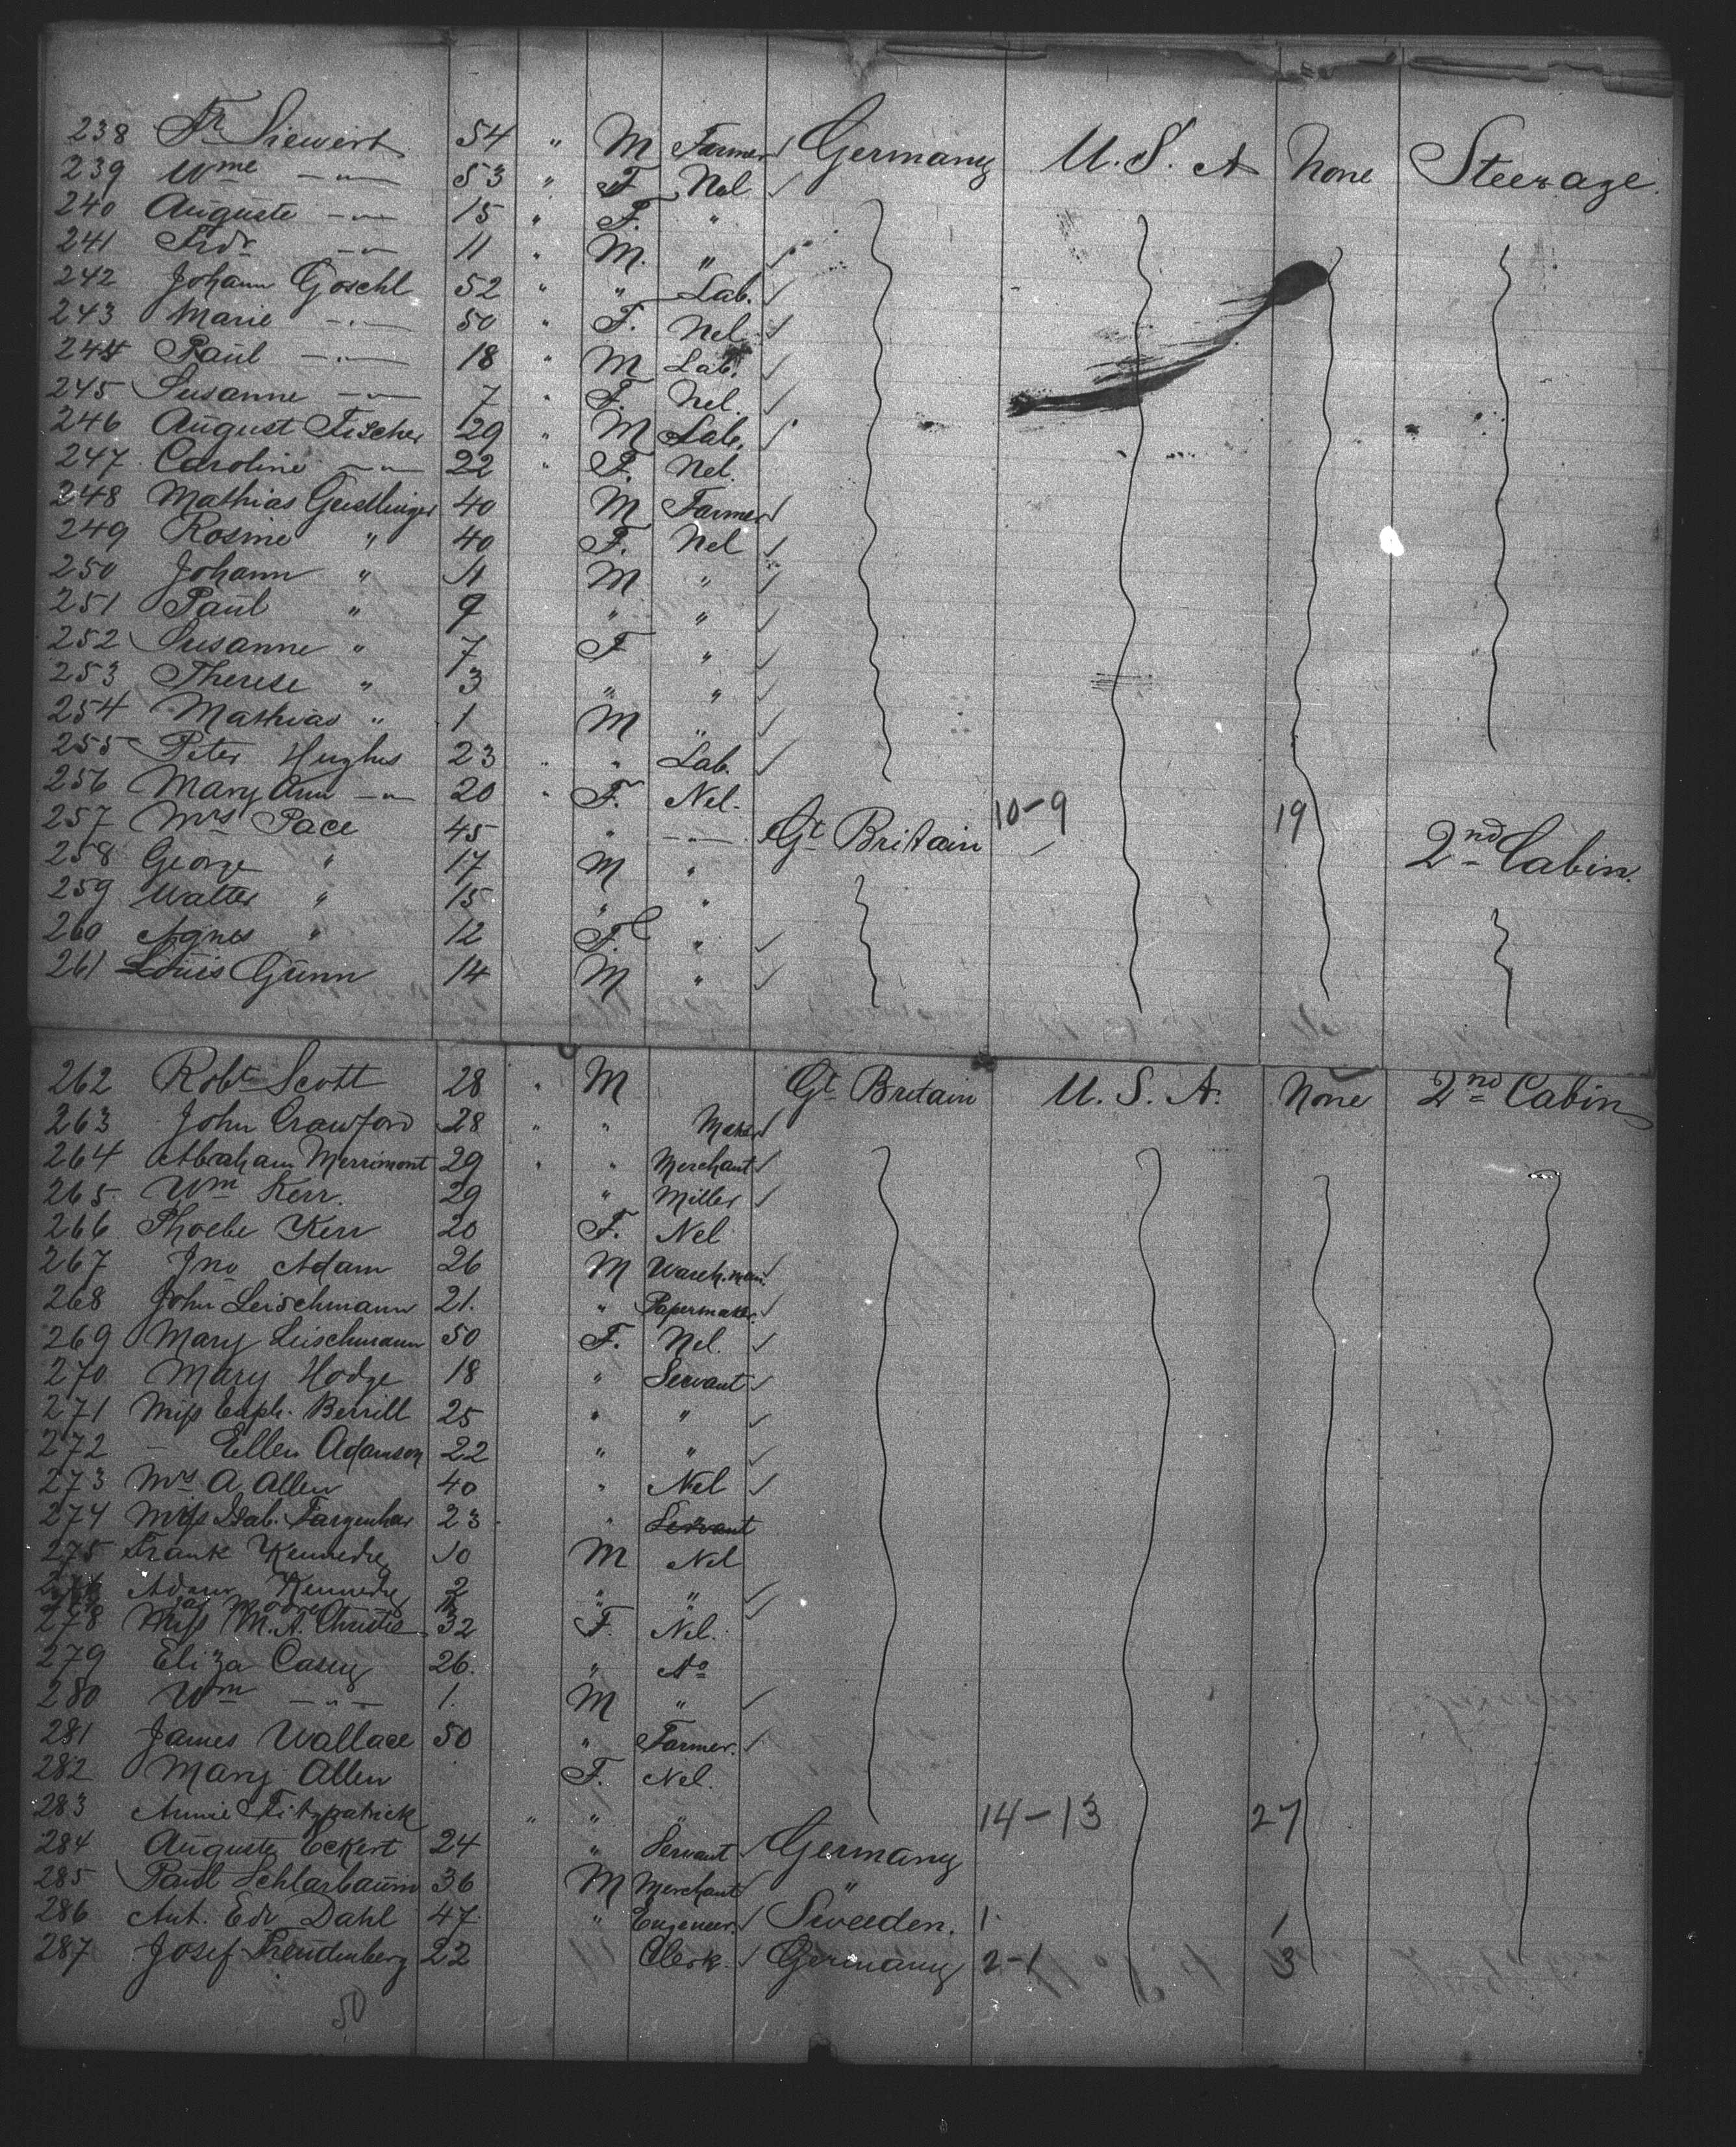 238 Fr Siewert 54 " M Farmer Germany U. S. A None Steerage.
239 Wme —"— 53 " F Nel
240 Auguste —"— 15 " F. "
241 Frdr —"— 11 " M. "
242 Johann Goschl 52 " " Lab.
243 Marie —"— 50 " F. Nel
244 Paul —"— 18 " M Lab.
245 Susanne —"— 7 " F. Nel.
246 August Fischer 29 " M Lab.
247 Caroline —"— 22 " F. Nel
248 Mathias Geistlinger 40 M Farmer
249 Rosine " 40 F. Nel
250 Johann " 11 M "
251 Paul " 9 " "
252 Susanne " 7 F "
253 Therese " 3 " "
254 Mathias " 1 M "
255 Peter Hughes 23 " " Lab.
256 Mary Ann —"— 20 " F. Nel.
257 Mrs Pace 45 " —"— Gt Britain 10-9 19 2nd Cabin.
258 George " 17 M "
259 Walter " 15 " "
260 Agnes " 12 F. "
261 Louis Gunn 14 M "
262 Robt Scott 28 " M Gt Britain U. S. A. None 2nd Cabin
263 John Crawford 28 " " Maker
264 Abraham Merrimont 29 " " Merchant
265 Wm Kerr. 29 " Miller
266 Phoebe Kerr 20 F. Nel
267 Jno Adam 26 M Wareh.man.
268 John Leischmann 21. " Papermaker.
269 Mary Leischmann 50 F. Nel.
270 Mary Hodge 18 " Servant
271 Miss Euph. Berrill 25 " "
272 — Ellen Adamson 22 " "
273 Mrs A. Allen 40 " Nel
274 Miss Isab. Fargenhar 23 " Servant
275 Frank Kennedy 10 M Nel
276 Adam Kennedy 2 " "
Jas Moore " "
278 Miss M. A. Christie 32 F. Nel.
279 Eliza Casey 26. " Do
280 Wm —"— 1. M "
281 James Wallace 50 " Farmer.
282 Mary Allen F. Nel.
283 Annie Fitzpatrick " " " 14-13 27
284 Auguste Eckert 24 " Servant Germany
285 Paul Schlarbaum 36 M Merchant "
286 Ant. Edv Dahl 47 " Engeneer. Sweeden. 1 1
287 Josef Freudenberg 22 Clerk. Germany 2-1 3
50